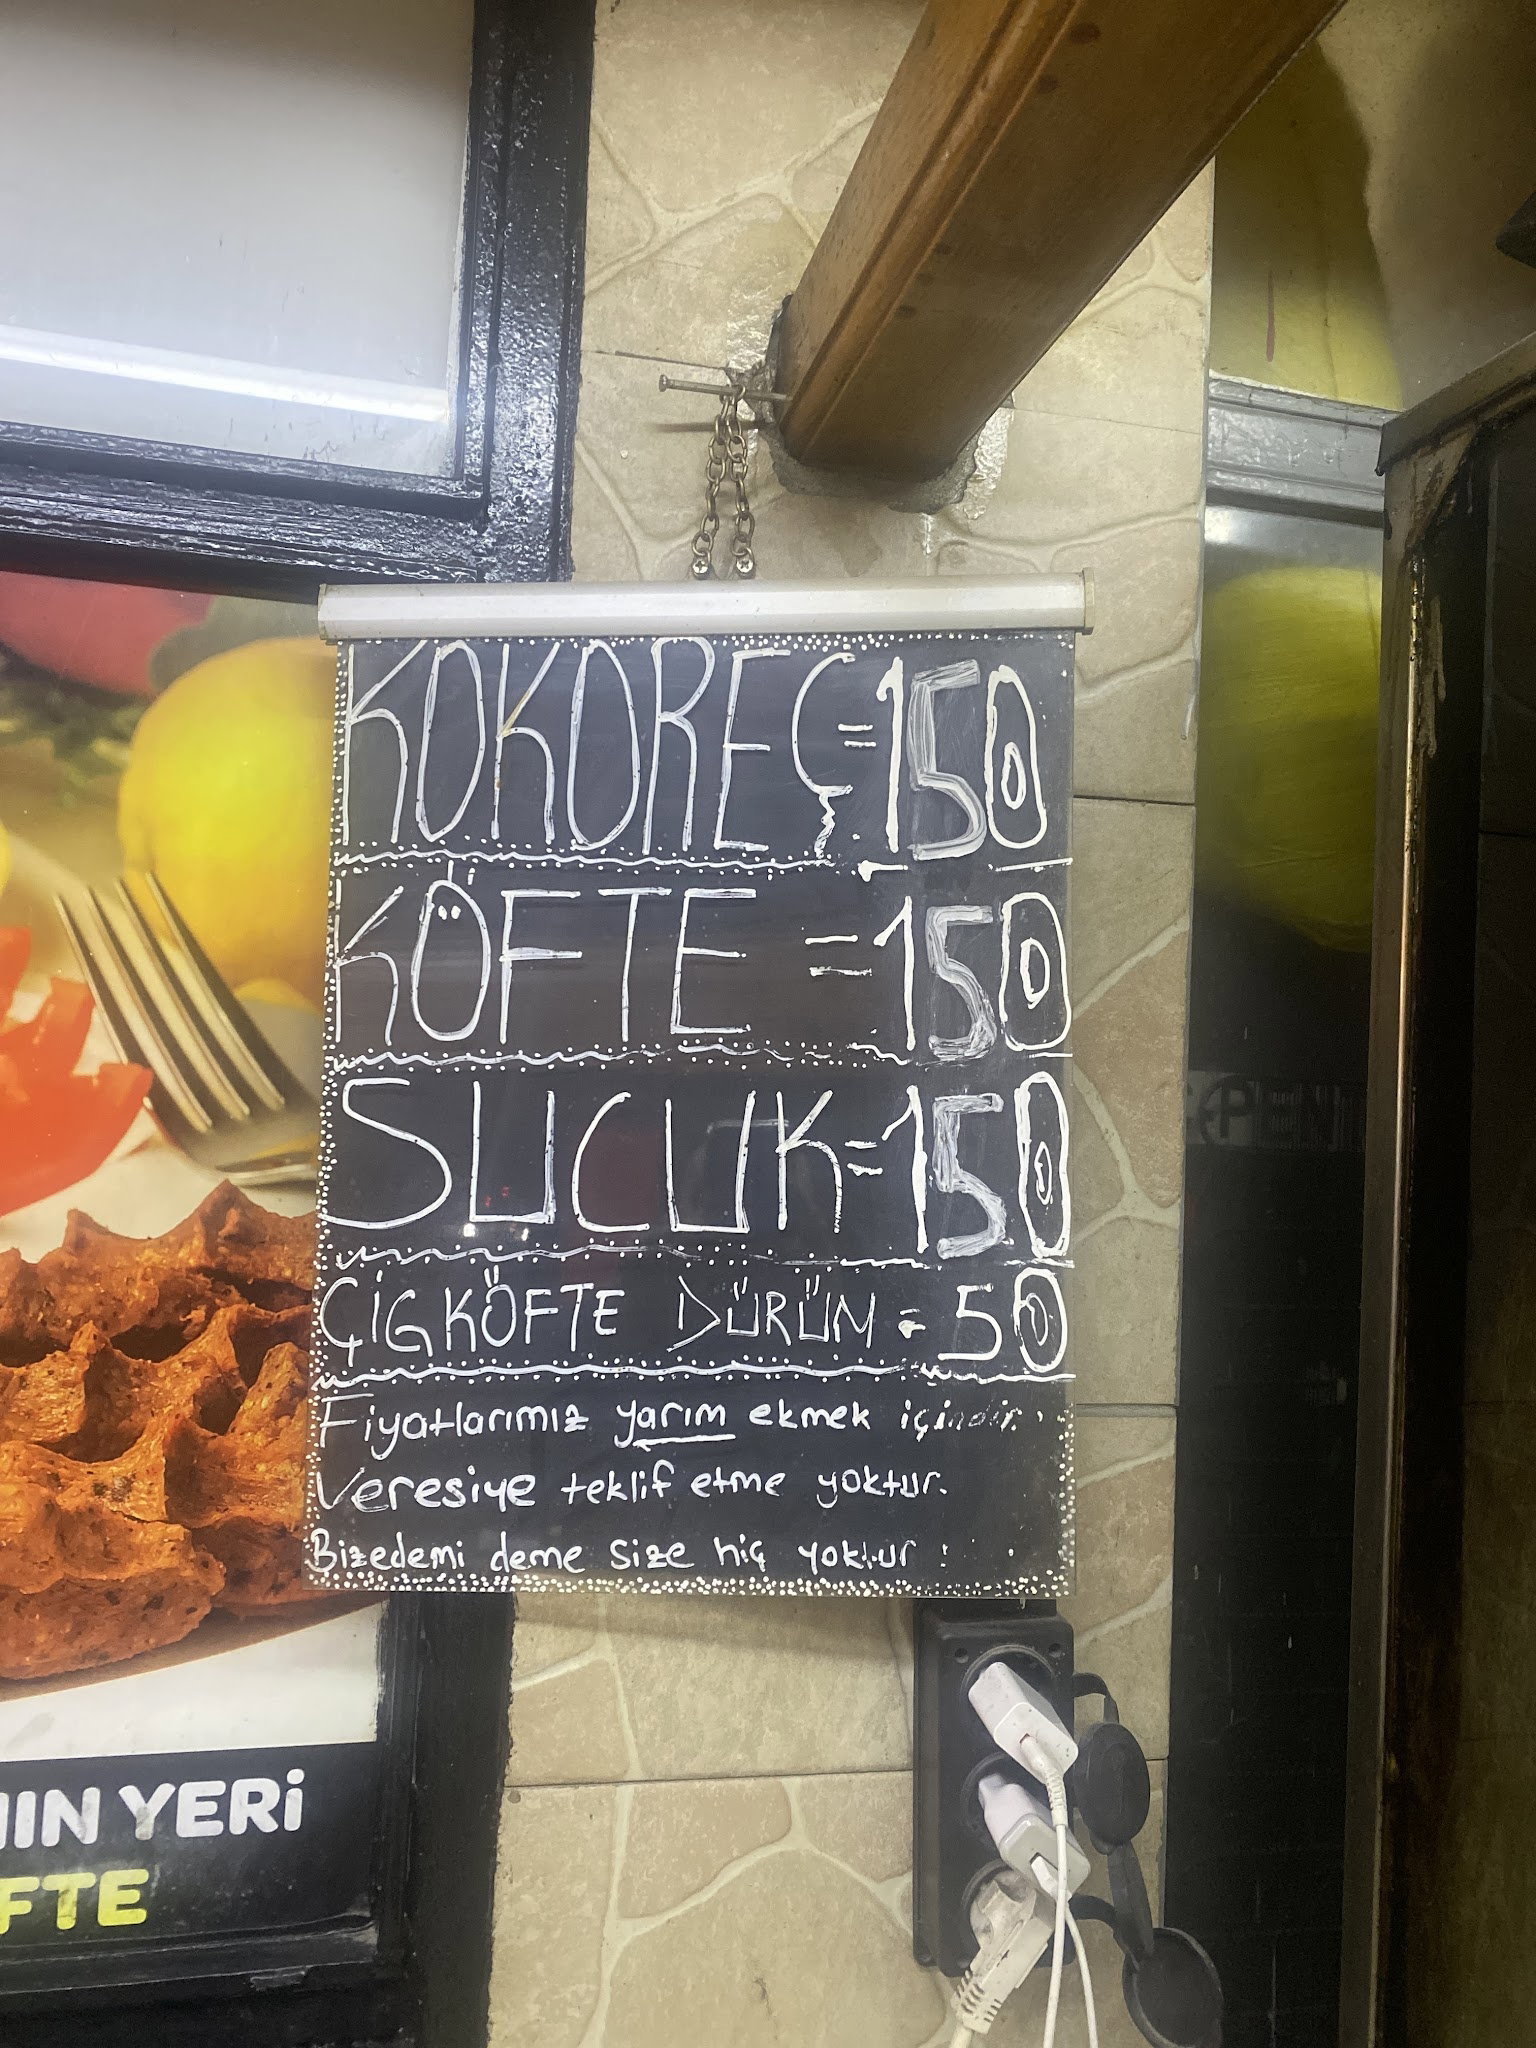 KOKOREÇ=150
KÖFTE =150
SUCUK=150
ÇİGKÖFTE DÜRÜM = 50
Fiyatlarımız yarım ekmek içindir.
Veresiye teklif etme yoktur.
Bizedemi deme size hiç yoktur!
NIN YERİ
FTE